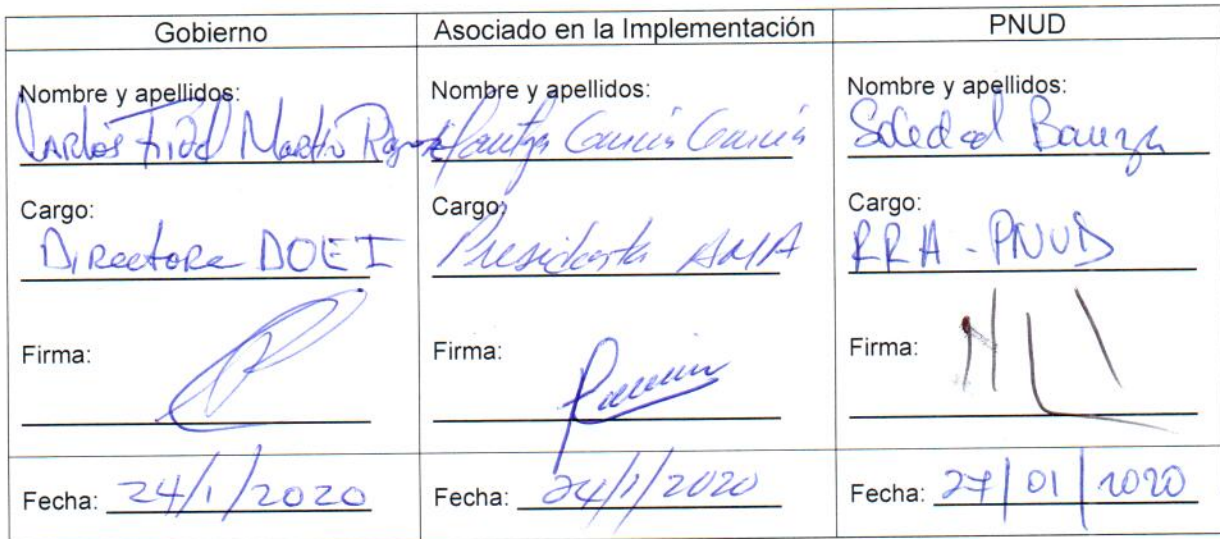 Gobierno
Asociado en la Implementación
PNUD
Nombre y apellidos:
Carlos Fidel Martín
Nombre y apellidos:
Maritza García García
Nombre y apellidos:
Soledad Bauza
Cargo:
Directora DOEI
Cargo:
Presidenta AMA
Cargo:
RRA - PNUD
Firma:
Firma:
Firma:
Fecha: 24/1/2020
Fecha: 24/1/2020
Fecha: 27/01/2020